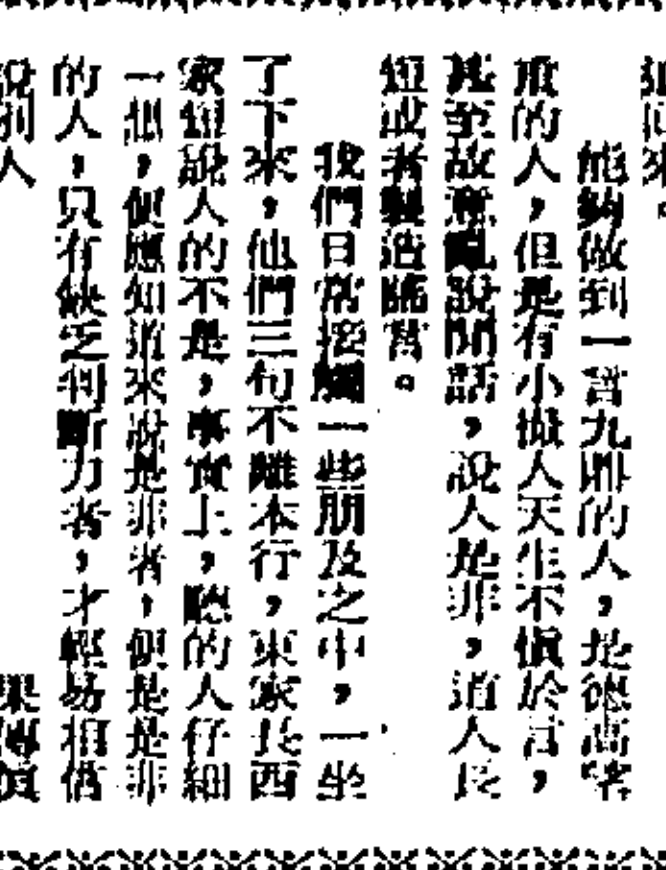 追回來。
能夠做到一言九鼎的人,是德高望
重的人,但是有小撮人天生不慎於言,
甚至故意亂說閒話,說人是非,道人長
短或者製造謠言。
我們日常接觸一些朋友之中,一坐
了下來,他們三句不離本行,東家長西
家短說人的不是,事實上,聽的人仔細
一想,便應知道來說是非者,便是是非
的人,只有缺乏判斷力者,才輕易相信
說別人